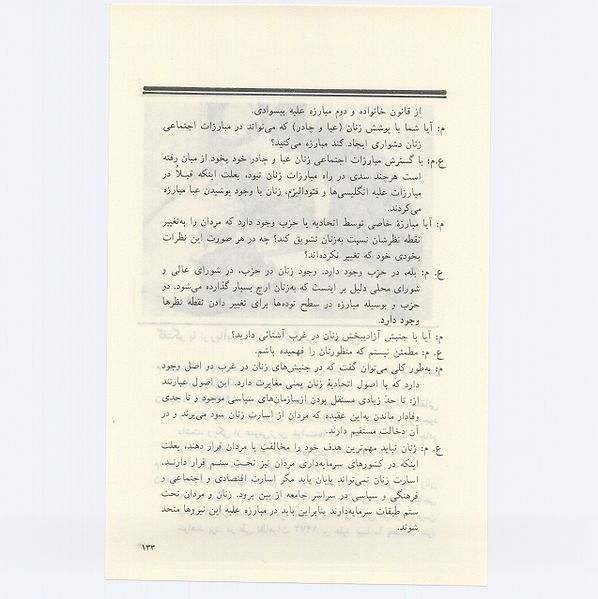 از قانون خانواده و دوم مبارزه علیه بیسوادی.
م: آیا شما با پوشش زنان (عبا و چادر) که می‌تواند در مبارزات اجتماعی
زنان دشواری ایجاد کند مبارزه می‌کنید؟
ع.م: با گسترش مبارزات اجتماعی زنان عبا و چادر خود بخود از میان رفته
است هرچند سدی در راه مبارزات زنان نبود، بعلت اینکه قبلاً در
مبارزات علیه انگلیسی‌ها و فئودالیزم، زنان با وجود پوشیدن عبا مبارزه
می‌کردند.
م: آیا مبارزهٔ خاصی توسط اتحادیه یا حزب وجود دارد که مردان را به‌تغییر
نقطه نظرشان نسبت به‌زنان تشویق کند؟ چه در هر صورت این نظرات
بخودی خود که تغییر نکرده‌اند؟
ع. م: بله، در حزب وجود دارد. وجود زنان در حزب، در شورای عالی و
شورای محلی دلیل بر اینست که به‌زنان ارج بسیار گذارده می‌شود. در
حزب و بوسیله مبارزه در سطح توده‌ها برای تغییر دادن نقطه نظرها
وجود دارد.
م: آیا با جنبش آزادیبخش زنان در غرب آشنائی دارید؟
ع. م: مطمئن نیستم که منظورتان را فهمیده باشم.
م: به‌طور کلی می‌توان گفت که در جنبش‌های زنان در غرب دو اصل وجود
دارد که با اصول اتحادیهٔ زنان یمنی مغایرت دارد. این اصول عبارتند
از: تا حدّ زیادی مستقل بودن ازسازمان‌های سیاسی موجود و تا حدی
وفادار ماندن به‌این عقیده که مردان از اسارت زنان سود می‌برند و در
آن دخالت مستقیم دارند.
ع. م: زنان نباید مهم‌ترین هدف خود را مخالفت با مردان قرار دهند، بعلت
اینکه در کشورهای سرمایه‌داری مردان نیز تحت ستم قرار دارند.
اسارت زنان نمی‌تواند پایان یابد مگر اسارت اقتصادی و اجتماعی و
فرهنگی و سیاسی در سراسر جامعه از بین برود. زنان و مردان تحت
ستم طبقات سرمایه‌دارند بنابراین باید در مبارزه علیه این نیروها متحد
شوند.
۱۳۳